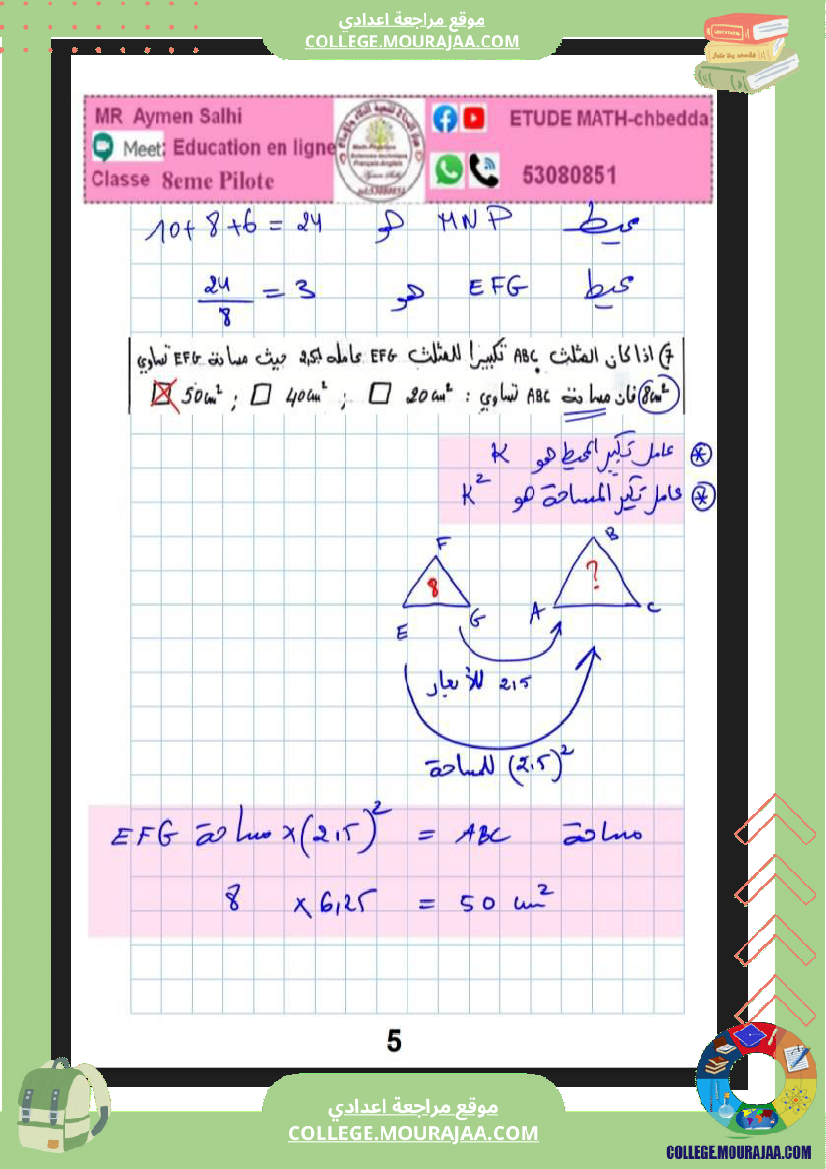 موقع مراجعة اعدادي
COLLEGE.MOURAJAA.COM
MR Aymen Salhi
Meet: Education en ligne
Classe 8eme Pilote
ETUDE MATH-chbedda
53080851
محيط MNP هو 10+8+6 = 24
محيط EFG هو 24/8 = 3
7) اذا كان المثلث ABC تكبيرا للمثلث EFG عامله 2,5 حيث مساحة EFG تساوي
8cm² فان مساحة ABC تساوي : 20cm² ; 40cm² ; 50cm²
* عامل تكبير المحيط هو K
* عامل تكبير المساحة هو K²
F
B
8
?
E
G
A
C
2,5 للأبعاد
(2,5)² للمساحة
مساحة ABC = (2,5)² × مساحة EFG
8 × 6,25 = 50 cm²
5
موقع مراجعة اعدادي
COLLEGE.MOURAJAA.COM
COLLEGE.MOURAJAA.COM